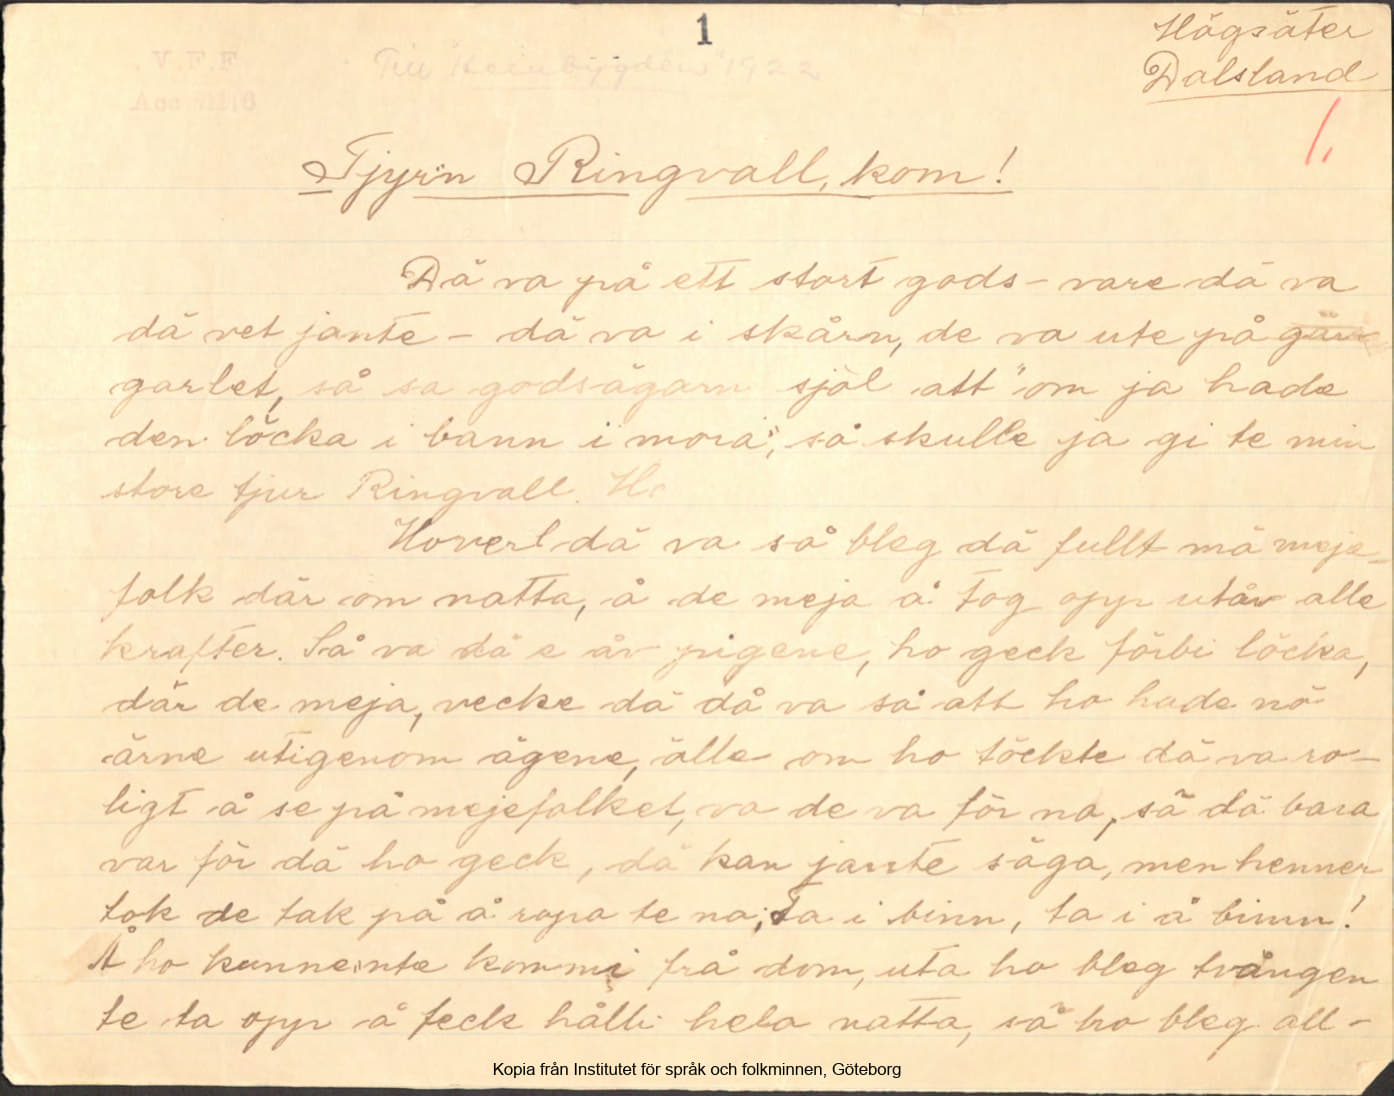 1
Högsäter
Dalsland
V.F.F.
Till Hembygden 1922
1.
Tjyr'n Ringvall, kom!
Dä va på ett stort gods – vare dä va
dä vet jante – dä va i skårn, de va ute på
garlet, så sa godsägarn själ att "om ja hade
den löcka i bann i mora", så skulle ja gi te min
store tjur Ringvall. Ho
Hoverl dä va så bleg dä fullt mä meje-
folk där om natta, å de meja å tog opp utåv alle
krafter. Så va dä e åv pigene, ho geck förbi löcka,
där de meja, vecke dä då va så att ho hade nö
ärne utigenom ägene, älle om ho töckte dä va ro-
ligt å se på mejefolket, va de va för na, så dä bara
var för dä ho geck, dä kan jante säga, men henner
tok de tak på å ropa te na; Ta i binn, ta i å binn!
Å ho kunneinte kommi frå dom, uta ho bleg tvången
te ta opp å feck hålli hela natta, så ho bleg all-
Kopia från Institutet för språk och folkminnen, Göteborg